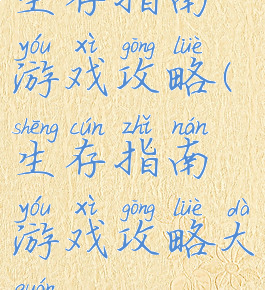 生存指南
yóu xì gōng lüè
游戏攻略(
shēng cún zhǐ nán
生存指南
yóu xì gōng lüè dà
游戏攻略大
quán